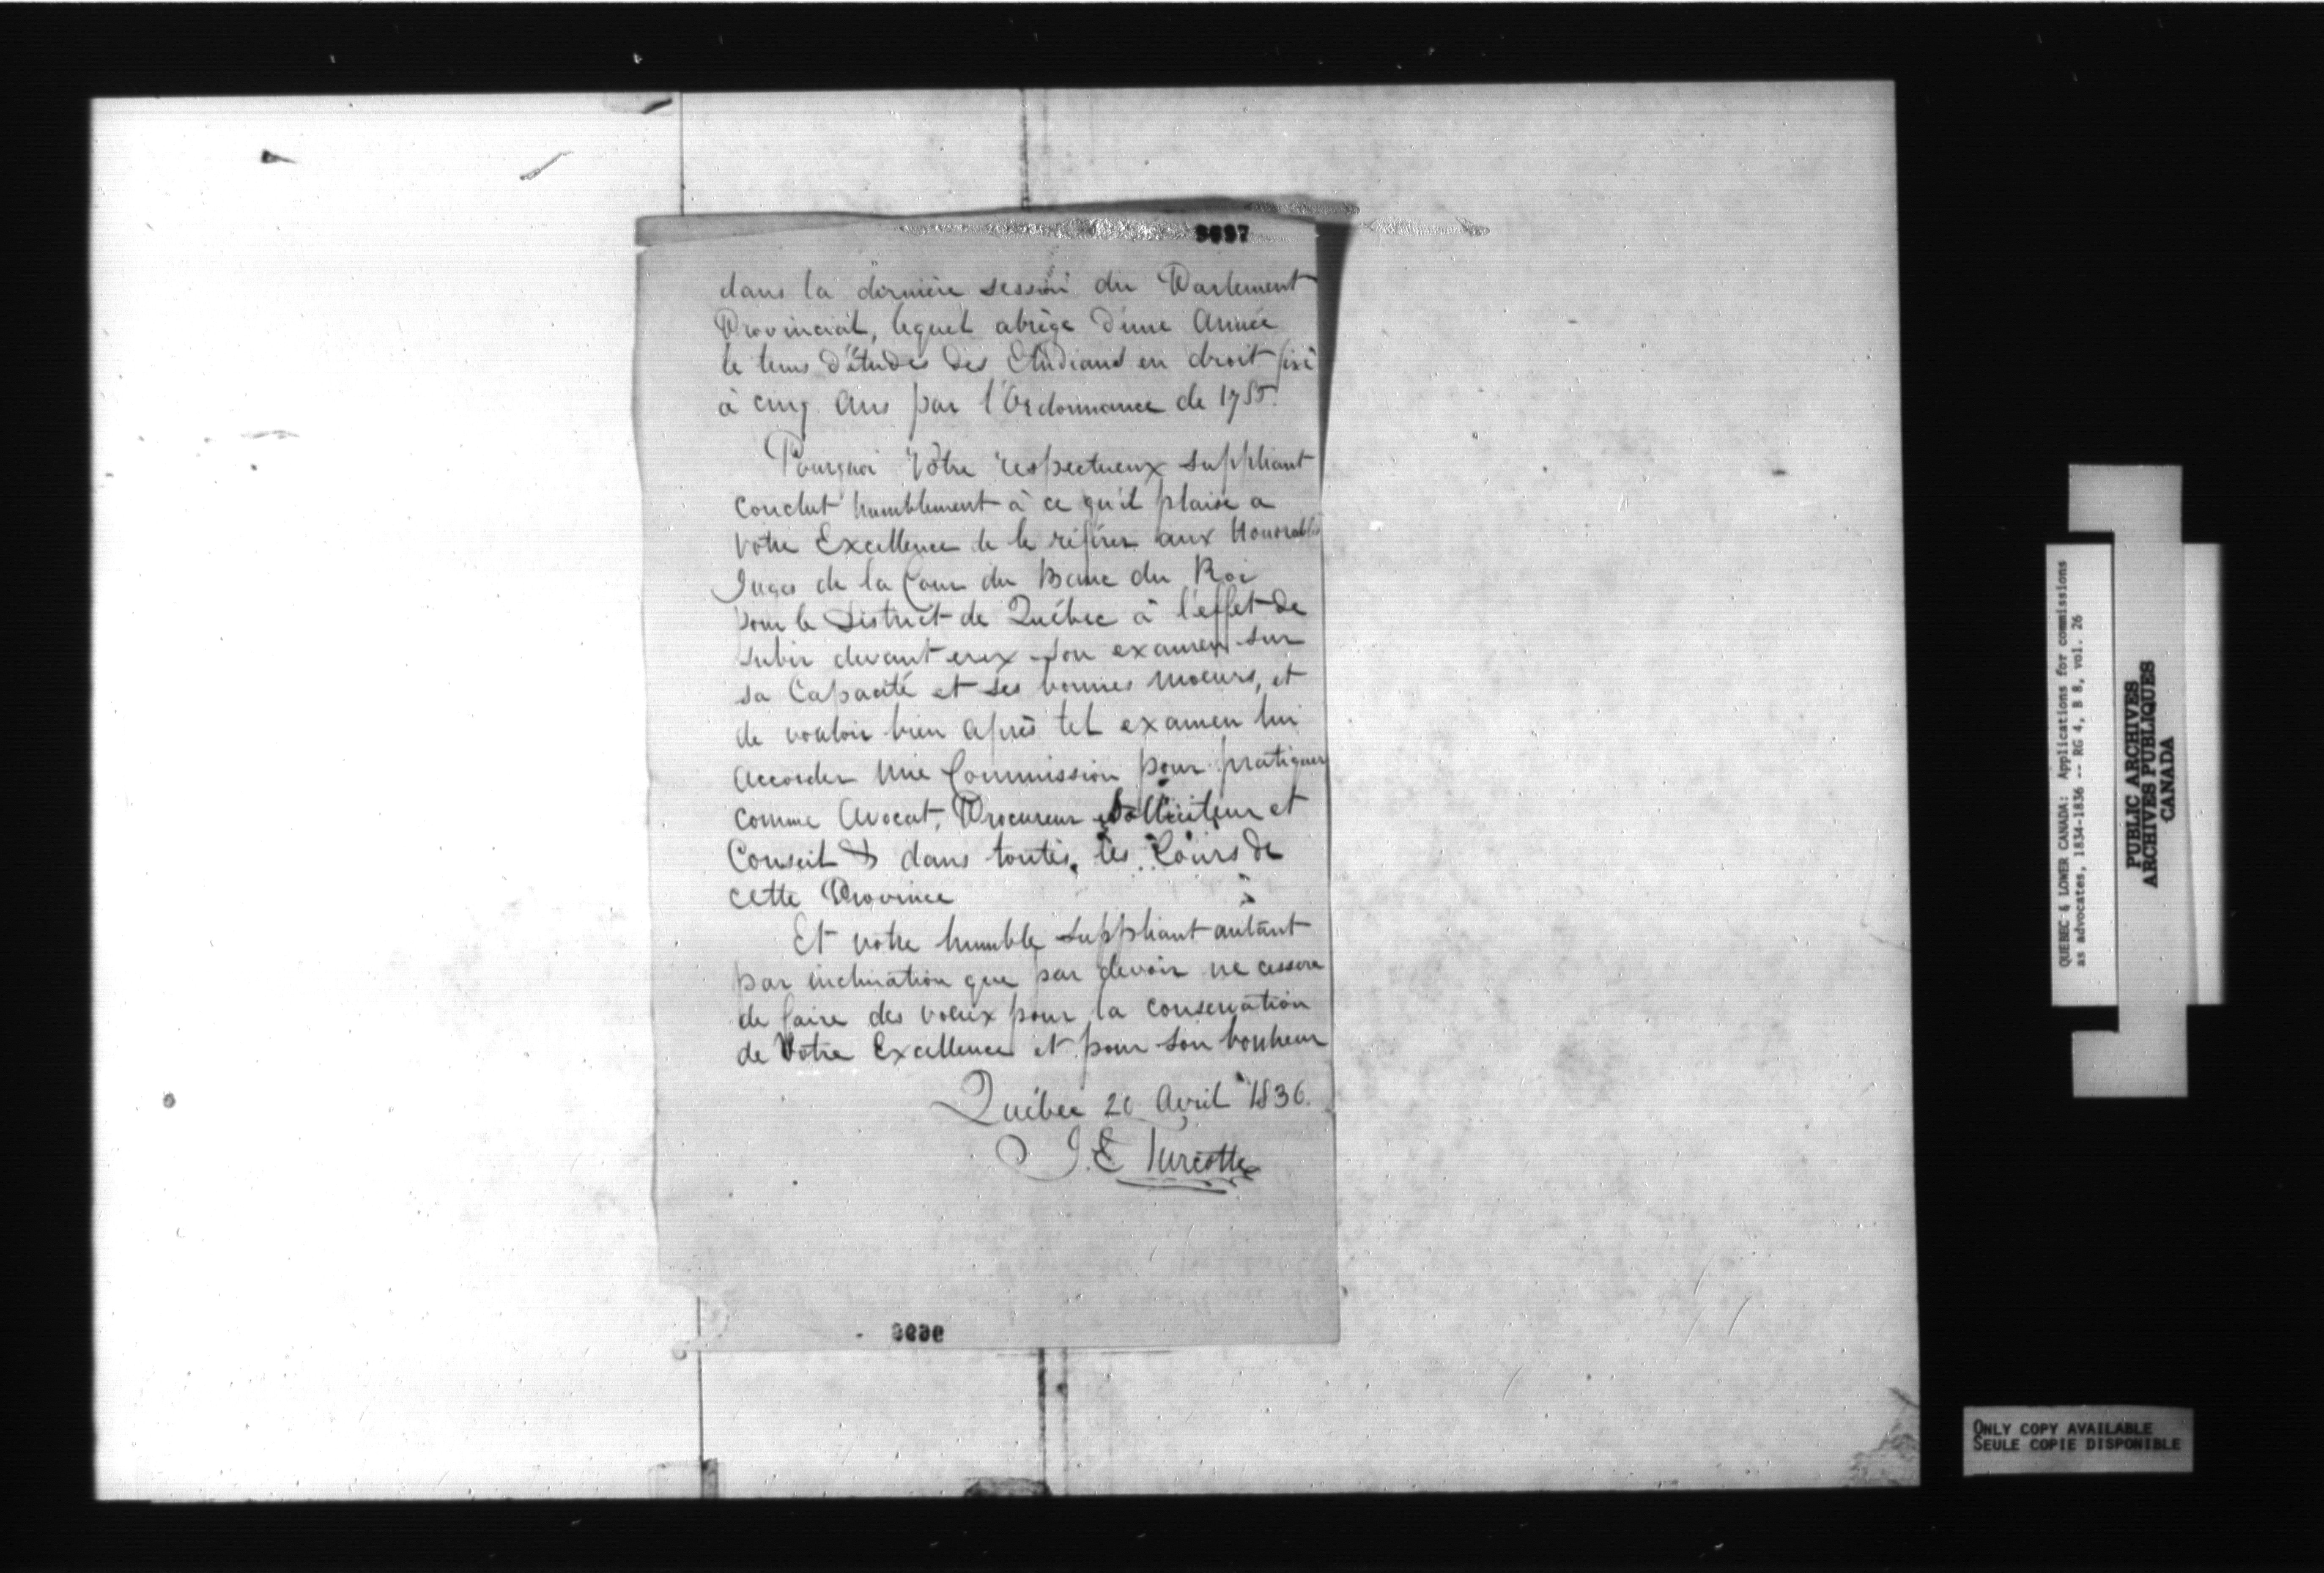 dans la dernière session du Parlement
Provincial, lequel abrège d'une Année
le tems d'études des Etudians en droit fixé
à cinq Ans par l'Ordonnance de 1785.
Pourquoi Vôtre respectueux suppliant
conclut humblement à ce qu'il plaise a
Votre Excellence de le référer aux Honorables
Juges de la Cour du Banc du Roi
pour le District de Québec à l'effet de
subir devant eux son examen sur
sa Capacité et ses bonnes moeurs, et
de vouloir bien après tel examen lui
accorder une Commission pour pratiquer
comme Avocat, Procureur Solliciteur et
Conseil & dans toutes les Cours de
cette Province
Et votre humble suppliant autant
par inclination que par devoir ne cessera
de faire des voeux pour la conservation
de Votre Excellence et pour son bonheur
Québec Avril 1836.
J. E Turcotte
QUEBEC & LOWER CANADA: Applications for commissions
as advocates, 1834-1836 -- RG 4, B 8, vol. 26
PUBLIC ARCHIVES
ARCHIVES PUBLIQUES
CANADA
ONLY COPY AVAILABLE
SEULE COPIE DISPONIBLE